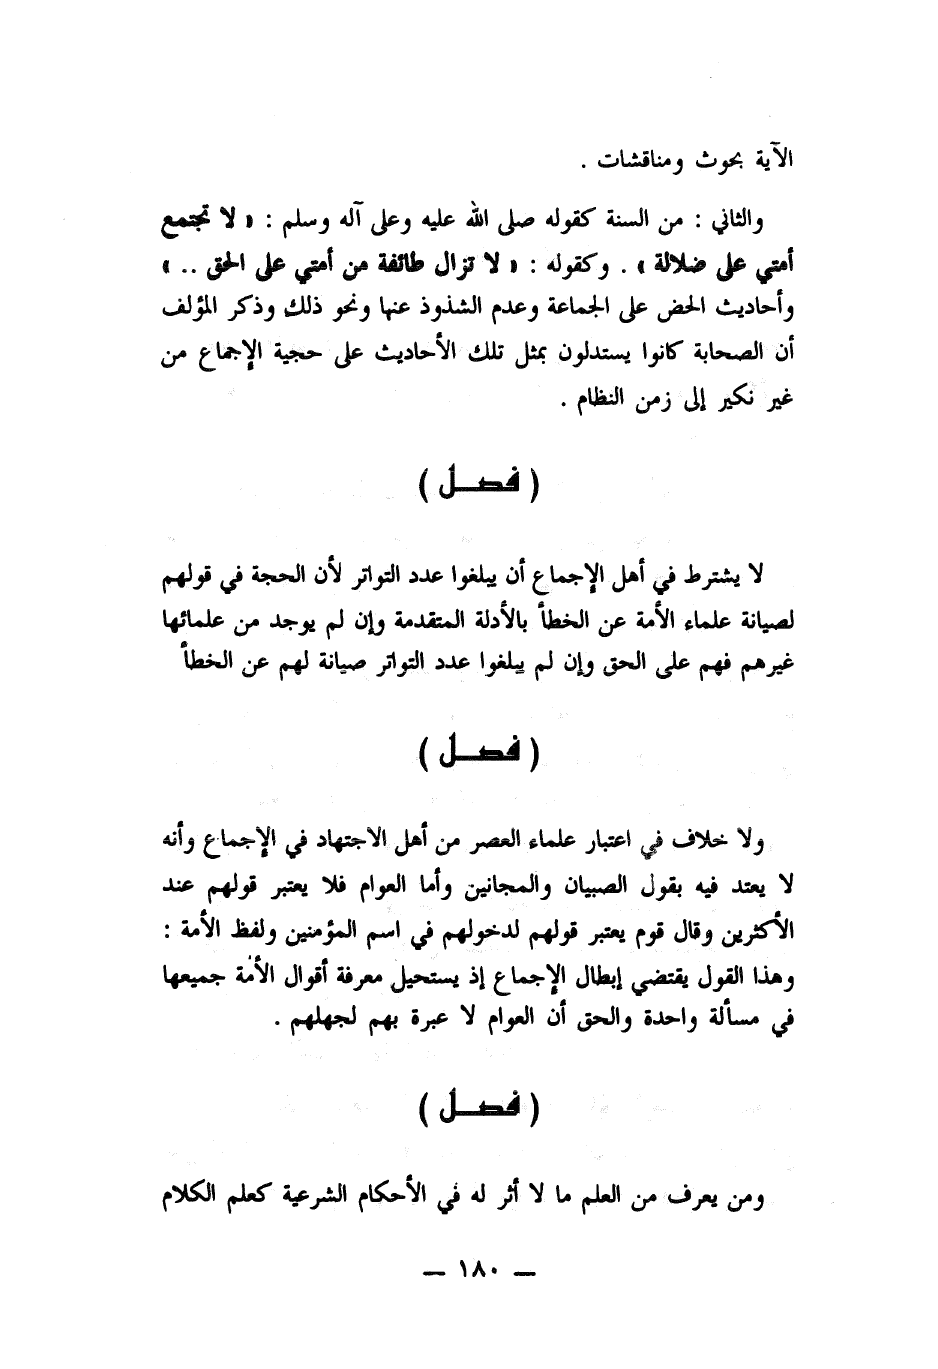 الآية بحوث ومناقشات .
والثاني : من السنة كقوله صلى الله عليه وعلى آله وسلم : « لا تجتمع
أمتي على ضلالة » . وكقوله : « لا تزال طائفة من أمتي على الحق .. »
وأحاديث الحض على الجماعة وعدم الشذوذ عنها ونحو ذلك وذكر المؤلف
أن الصحابة كانوا يستدلون بمثل تلك الأحاديث على حجية الإجماع من
غير نكير إلى زمن النظام .
( فصــل )
لا يشترط في أهل الإجماع أن يبلغوا عدد التواتر لأن الحجة في قولهم
لصيانة علماء الأمة عن الخطأ بالأدلة المتقدمة وإن لم يوجد من علمائها
غيرهم فهم على الحق وإن لم يبلغوا عدد التواتر صيانة لهم عن الخطأ
( فصــل )
ولا خلاف في اعتبار علماء العصر من أهل الاجتهاد في الإجماع وأنه
لا يعتد فيه بقول الصبيان والمجانين وأما العوام فلا يعتبر قولهم عند
الأكثرين وقال قوم يعتبر قولهم لدخولهم في اسم المؤمنين ولفظ الأمة :
وهذا القول يقتضي إبطال الإجماع إذ يستحيل معرفة أقوال الأمة جميعها
في مسألة واحدة والحق أن العوام لا عبرة بهم لجهلهم .
( فصــل )
ومن يعرف من العلم ما لا أثر له في الأحكام الشرعية كعلم الكلام
— ١٨٠ —